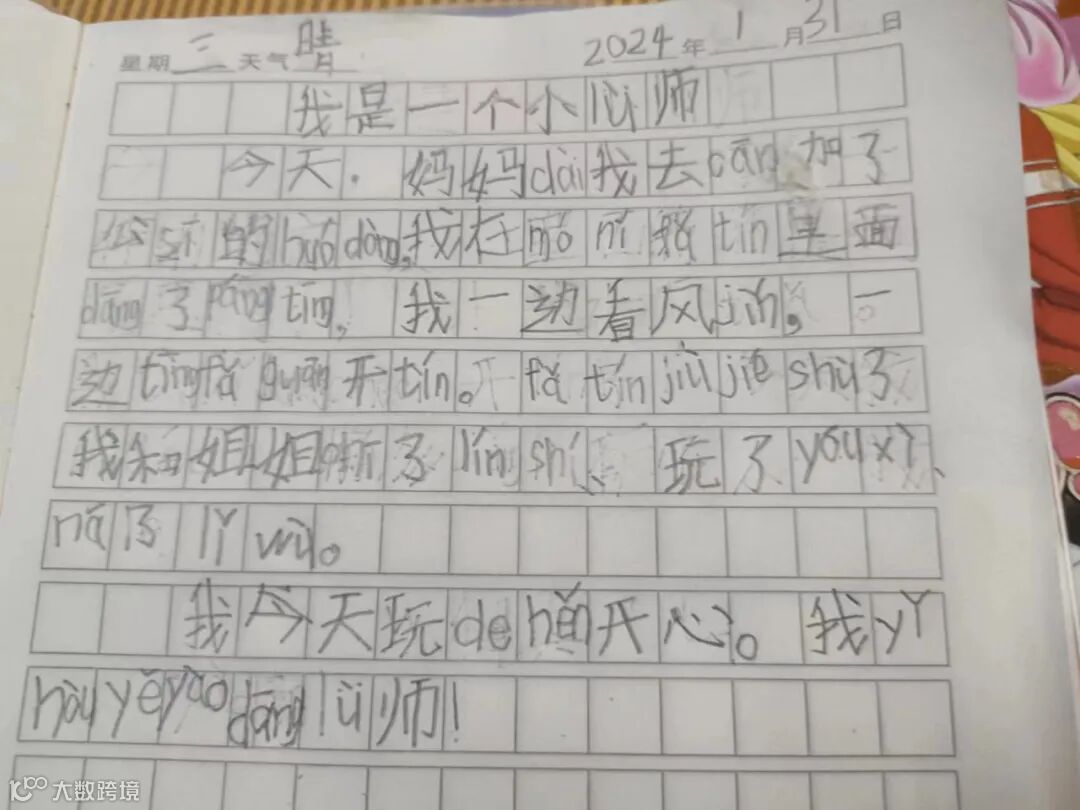 星期三 天气晴 2024年1月31日
我是一个小lǜ师
今天,妈妈dài我去cān加了
公sī的huódòng,我在mó nǐ fǎ tín里面
dāng了páng tīng,我一边看风jǐn,一
边tīngfǎ guān开tín。fǎ tín jiù jié shù了
我和姐姐吃了lín shí、玩了yóu xì、
ná了lǐ wù。
我今天玩de hěn开心。我yǐ
hòu yě yào dāng lǜ师!
大数跨境